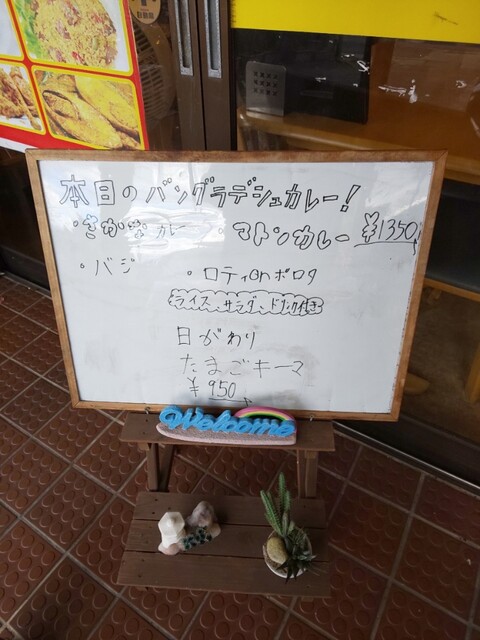 本日のバングラデシュカレー!
・さかなカレー ・マトンカレー ¥1350
・バジ ・ロティorポロタ
ライス、サラダ、ドリンク付き
日がわり
たまごキーマ
¥950
Welcome